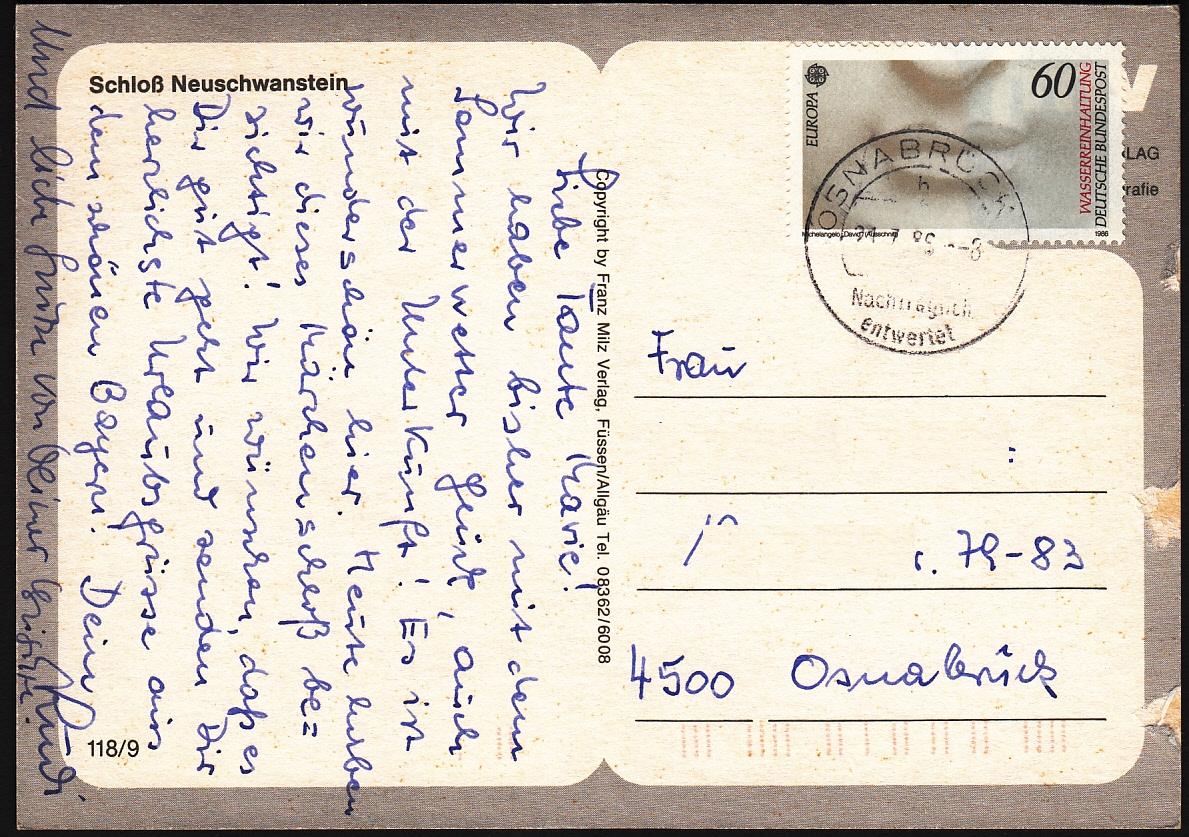 Schloß Neuschwanstein
Liebe Tante Marie!
Wir haben bisher mit dem
Sommerwetter Glück, auch
mit der Unterkunft! Es ist
wunderschön hier. Heute haben
wir dieses Märchenschloß be=
sichtigt! Wir wünschen, daß es
Dir gut geht und senden Dir
herrlichste Urlaubsgrüsse aus
dem schönen Bayern. Dein Rudi
Und liebe Grüße von Deiner Brigitte.
118/9
Copyright by Franz Milz Verlag, Füssen/Allgäu Tel. 08362/6008
EUROPA
60
WASSERREINHALTUNG
DEUTSCHE BUNDESPOST
Michelangelo „David“ (Ausschnitt)
1986
OSNABRÜCK
Nachträglich
entwertet
LAG
rafie
Frau
79-83
4500 Osnabrück